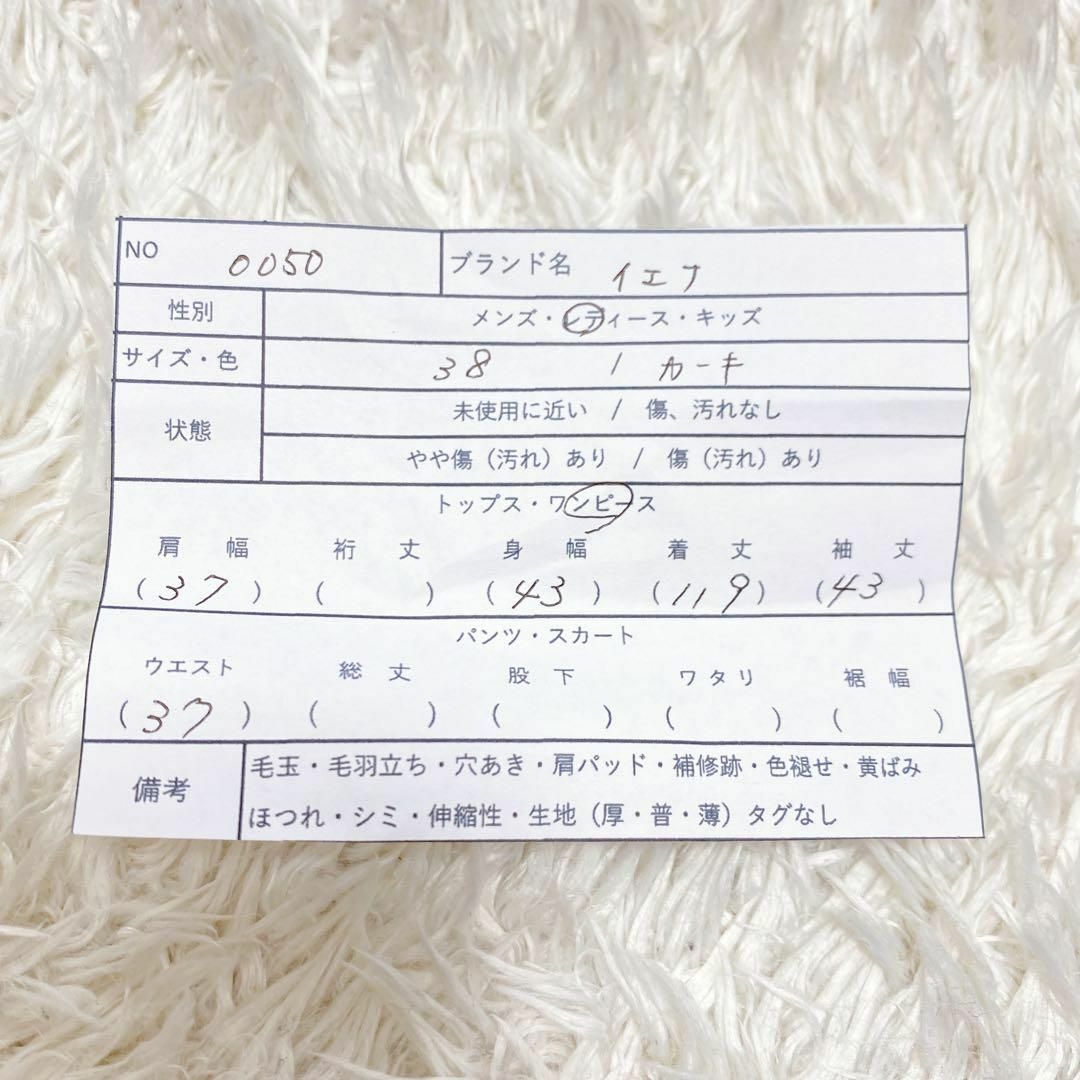 NO 0050 ブランド名 イエナ
性別 メンズ・レディース・キッズ
サイズ・色 38 / カーキ
状態 未使用に近い / 傷、汚れなし
やや傷（汚れ）あり / 傷（汚れ）あり
トップス・ワンピース
肩幅 裄丈 身幅 着丈 袖丈
(37) ( ) (43) (119) (43)
パンツ・スカート
ウエスト 総丈 股下 ワタリ 裾幅
(37) ( ) ( ) ( ) ( )
備考 毛玉・毛羽立ち・穴あき・肩パッド・補修跡・色褪せ・黄ばみ
ほつれ・シミ・伸縮性・生地（厚・普・薄）タグなし